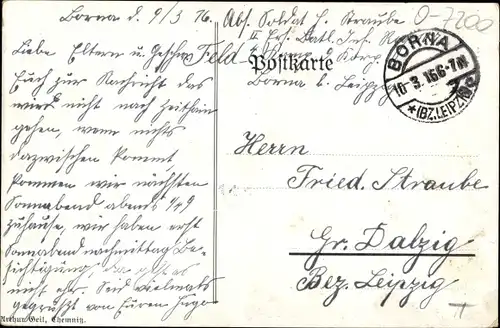 Borna d. 9/3 16.
Liebe Eltern u. Geschw.
Euch zur Nachricht das
wird nicht nach Zeithain
gehen, wenn nichts
dazwischen kommt
kommen wir nächsten
Sonnabend abends 1/2 9
zuhause, wir haben erst
Sonnabend nachmittag Be-
sichtigung, da geht es
nicht ehr. Seid vielmals
gegrüßt von Euren Hugo
Arthur Geil, Chemnitz.
Abs. Soldat H. Straube
II Ers. Batl. Inf.
Feld
Postkarte
Borna b. Leipzig
0-7200
BORNA
10.3.16.6-7N
*(BZ.LEIPZIG)
Herrn
Fried. Straube
Gr. Dalzig
Bez. Leipzig